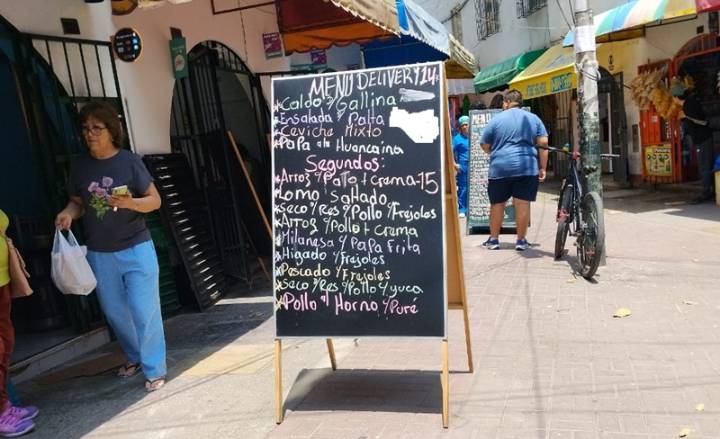 MENU DELIVERY 14.
*Caldo %Gallina
*Ensalad % Palta
*Ceviche Mixto
*Papa a la Huancaina
Segundos:
*Arros %Pato + crema-15
*Lomo Saltado
*Seco %Res %Pollo %Frejoles
*Arros %Pollo + Crema
*Milanesa % Papa Frita
*Higado %Frejoles
*Pescado %Frejoles
*Seco %Res %Pollo %yuca
*Pollo al Horno %Puré